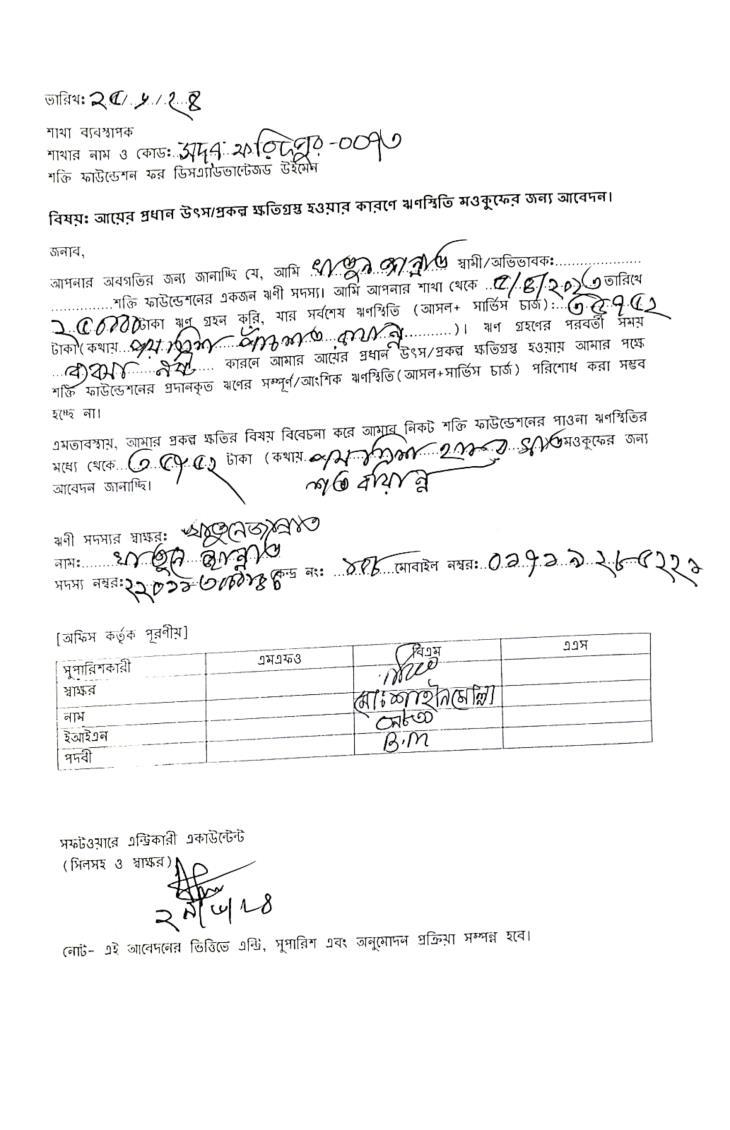 তারিখঃ ২৫/৬/২৪
শাখা ব্যবস্থাপক
শাখার নাম ও কোডঃ সদর ফরিদপুর-০০৭৩
শক্তি ফাউন্ডেশন ফর ডিসএ্যাডভান্টেজড উইমেন
বিষয়ঃ আয়ের প্রধান উৎস/প্রকল্প ক্ষতিগ্রস্থ হওয়ার কারণে ঋণস্থিতি মওকুফের জন্য আবেদন।
জনাব,
আপনার অবগতির জন্য জানাচ্ছি যে, আমি খাতুন জান্নাত স্বামী/অভিভাবকঃ....................
..............শক্তি ফাউন্ডেশনের একজন ঋণী সদস্য। আমি আপনার শাখা থেকে ৫/৪/২০২৩ তারিখে
২৫০০০ টাকা ঋণ গ্রহন করি, যার সর্বশেষ ঋণস্থিতি (আসল+ সার্ভিস চার্জ)ঃ
টাকা(কথায়..............)। ঋণ গ্রহণের পরবর্তী সময়
ব্যবসা নষ্ট কারনে আমার আয়ের প্রধান উৎস/প্রকল্প ক্ষতিগ্রস্থ হওয়ায় আমার পক্ষে
শক্তি ফাউন্ডেশনের প্রদানকৃত ঋণের সম্পূর্ণ/আংশিক ঋণস্থিতি(আসল+সার্ভিস চার্জ) পরিশোধ করা সম্ভব
হচ্ছে না।
এমতাবস্থায়, আমার প্রকল্প ক্ষতির বিষয় বিবেচনা করে আমার নিকট শক্তি ফাউন্ডেশনের পাওনা ঋণস্থিতির
মধ্যে থেকে টাকা (কথায় মওকুফের জন্য
আবেদন জানাচ্ছি। শত বায়ান্ন
ঋণী সদস্যর স্বাক্ষরঃ খাতুনেজান্নাত
নামঃ খাতুন জান্নাত
সদস্য নম্বরঃ কেন্দ্র নং: মোবাইল নম্বরঃ
[অফিস কর্তৃক পূরণীয়]
সুপারিশকারী এমএফও বিএম এএস
স্বাক্ষর
নাম মোঃ শাহীন মোল্লা
ইআইএন
পদবী B.M
সফটওয়ারে এন্ট্রিকারী একাউন্টেন্ট
(সিলসহ ও স্বাক্ষর)
নোট- এই আবেদনের ভিত্তিতে এন্ট্রি, সুপারিশ এবং অনুমোদন প্রক্রিয়া সম্পন্ন হবে।